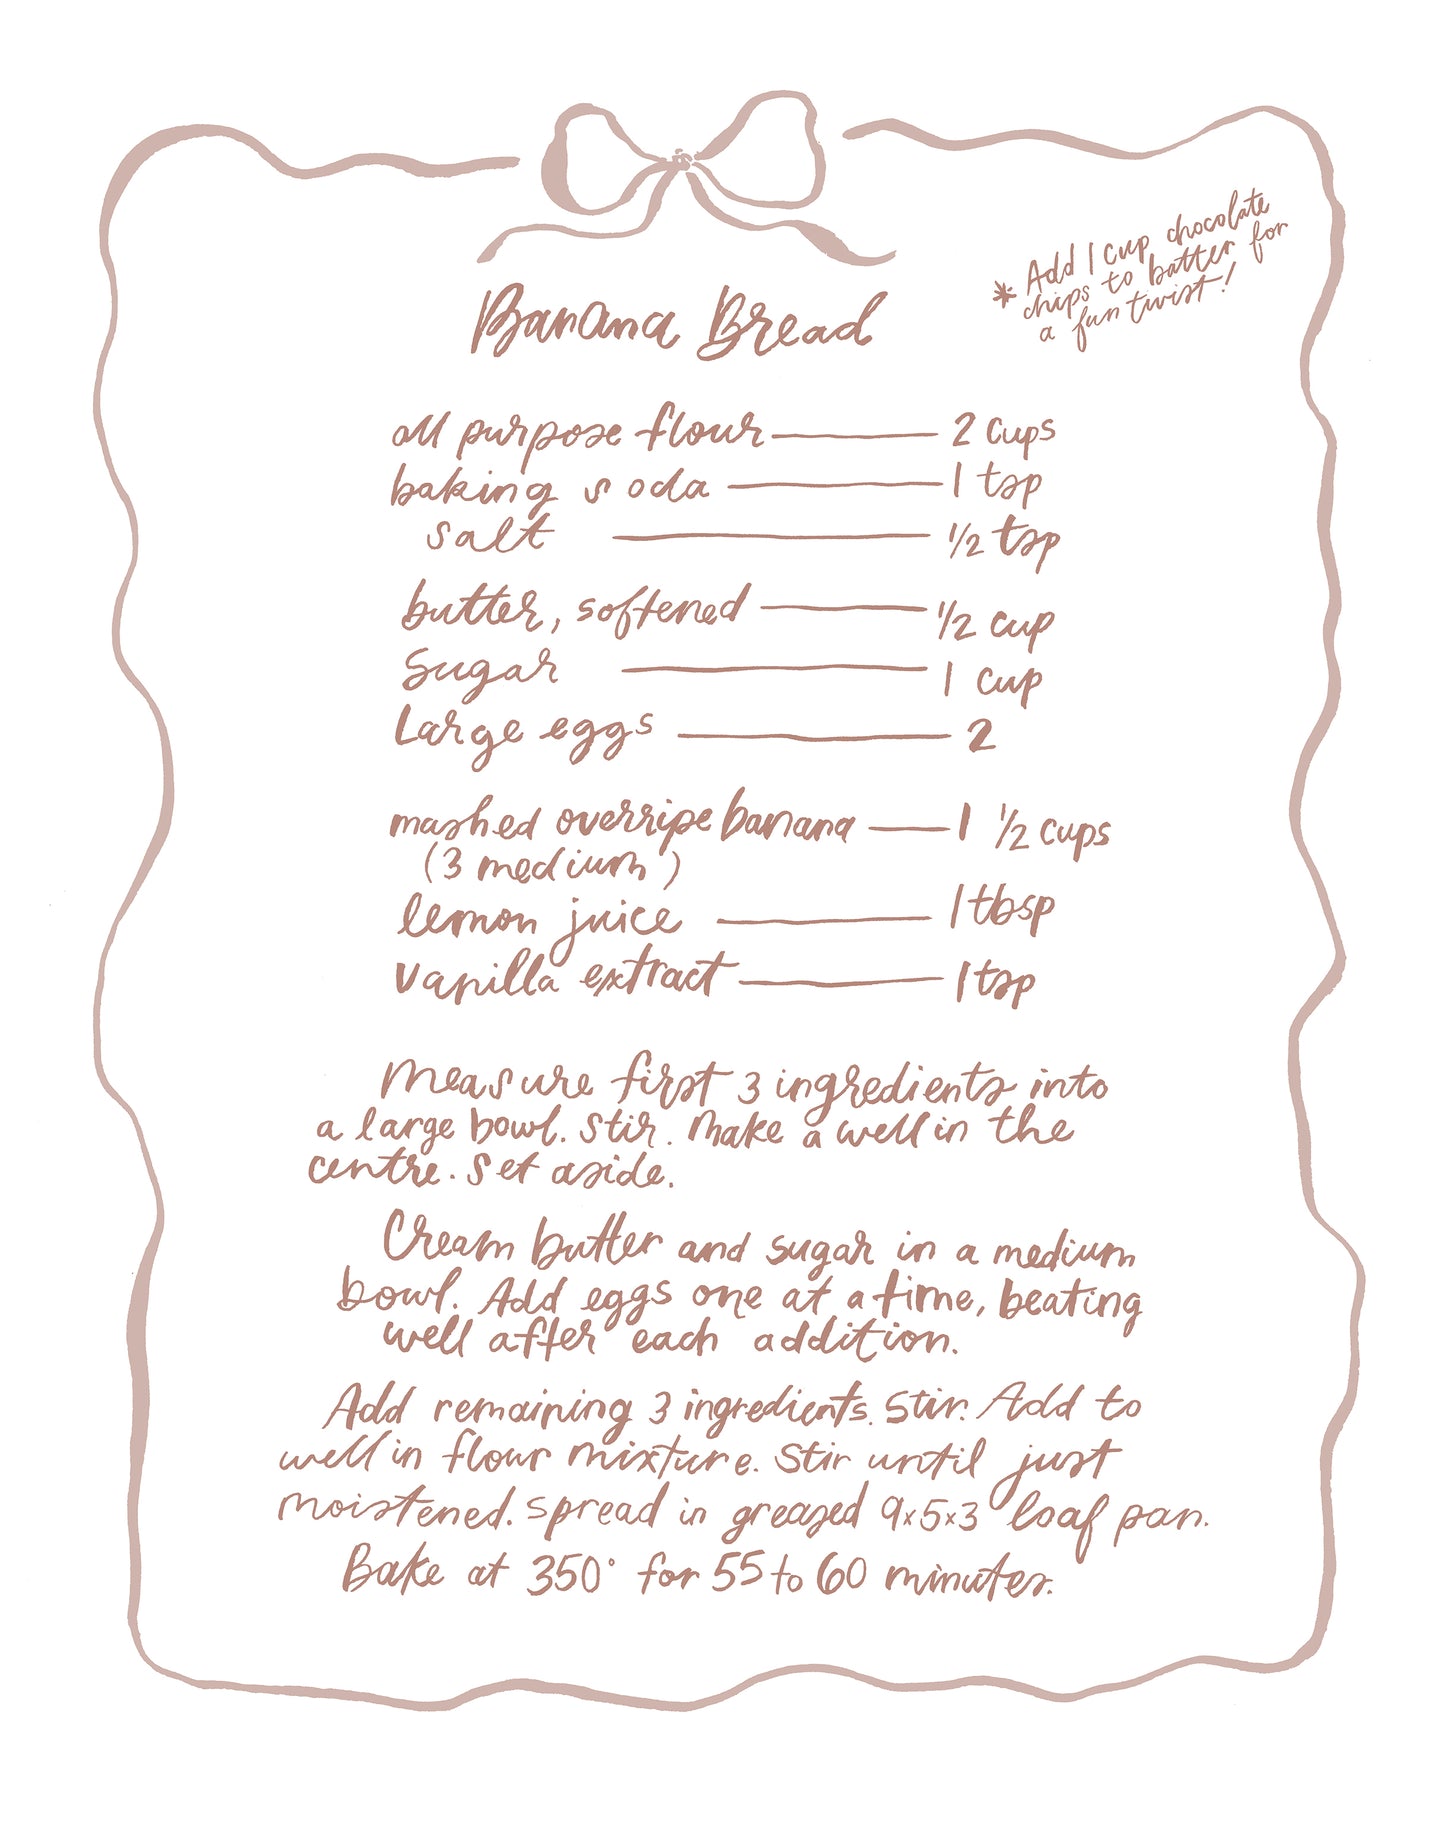 Banana Bread
* Add 1 cup chocolate
chips to batter for
a fun twist!
all purpose flour 2 cups
baking soda 1 tsp
salt 1/2 tsp
butter, softened 1/2 cup
Sugar 1 cup
Large eggs 2
mashed overripe banana 1 1/2 cups
(3 medium)
lemon juice 1 tbsp
vanilla extract 1 tsp
Measure first 3 ingredients into
a large bowl. Stir. Make a well in the
centre. Set aside.
Cream butter and sugar in a medium
bowl. Add eggs one at a time, beating
well after each addition.
Add remaining 3 ingredients. Stir. Add to
well in flour mixture. Stir until just
moistened. Spread in greased 9x5x3 loaf pan.
Bake at 350° for 55 to 60 minutes.